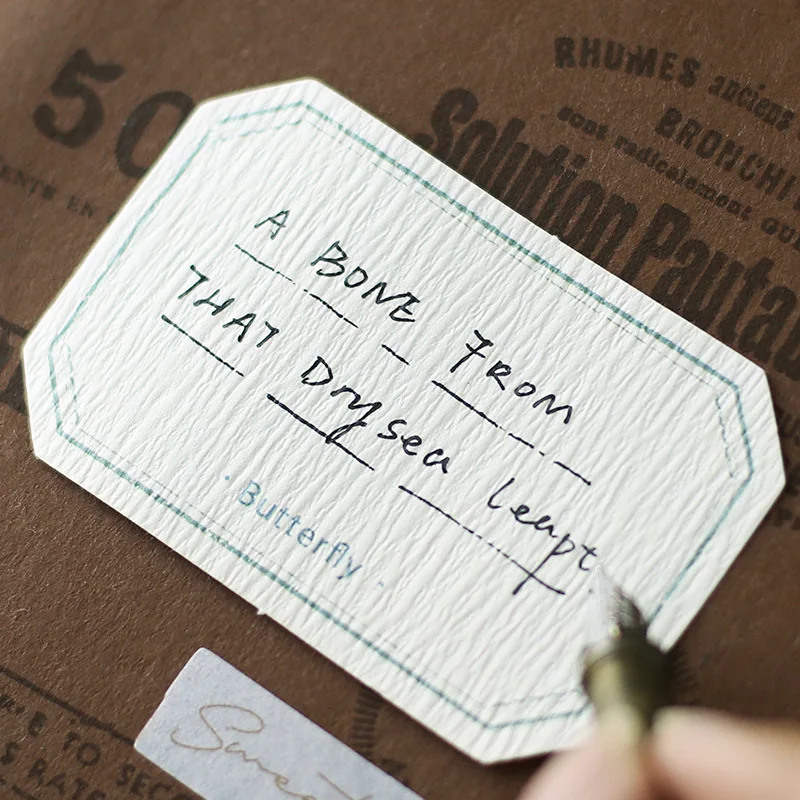 RHUMES anciens
BRONCHI
sont radicalement GU
Solution Pautau
50
A BONE FROM
THAT Dry sea leapt
· Butterfly ·
Sweet